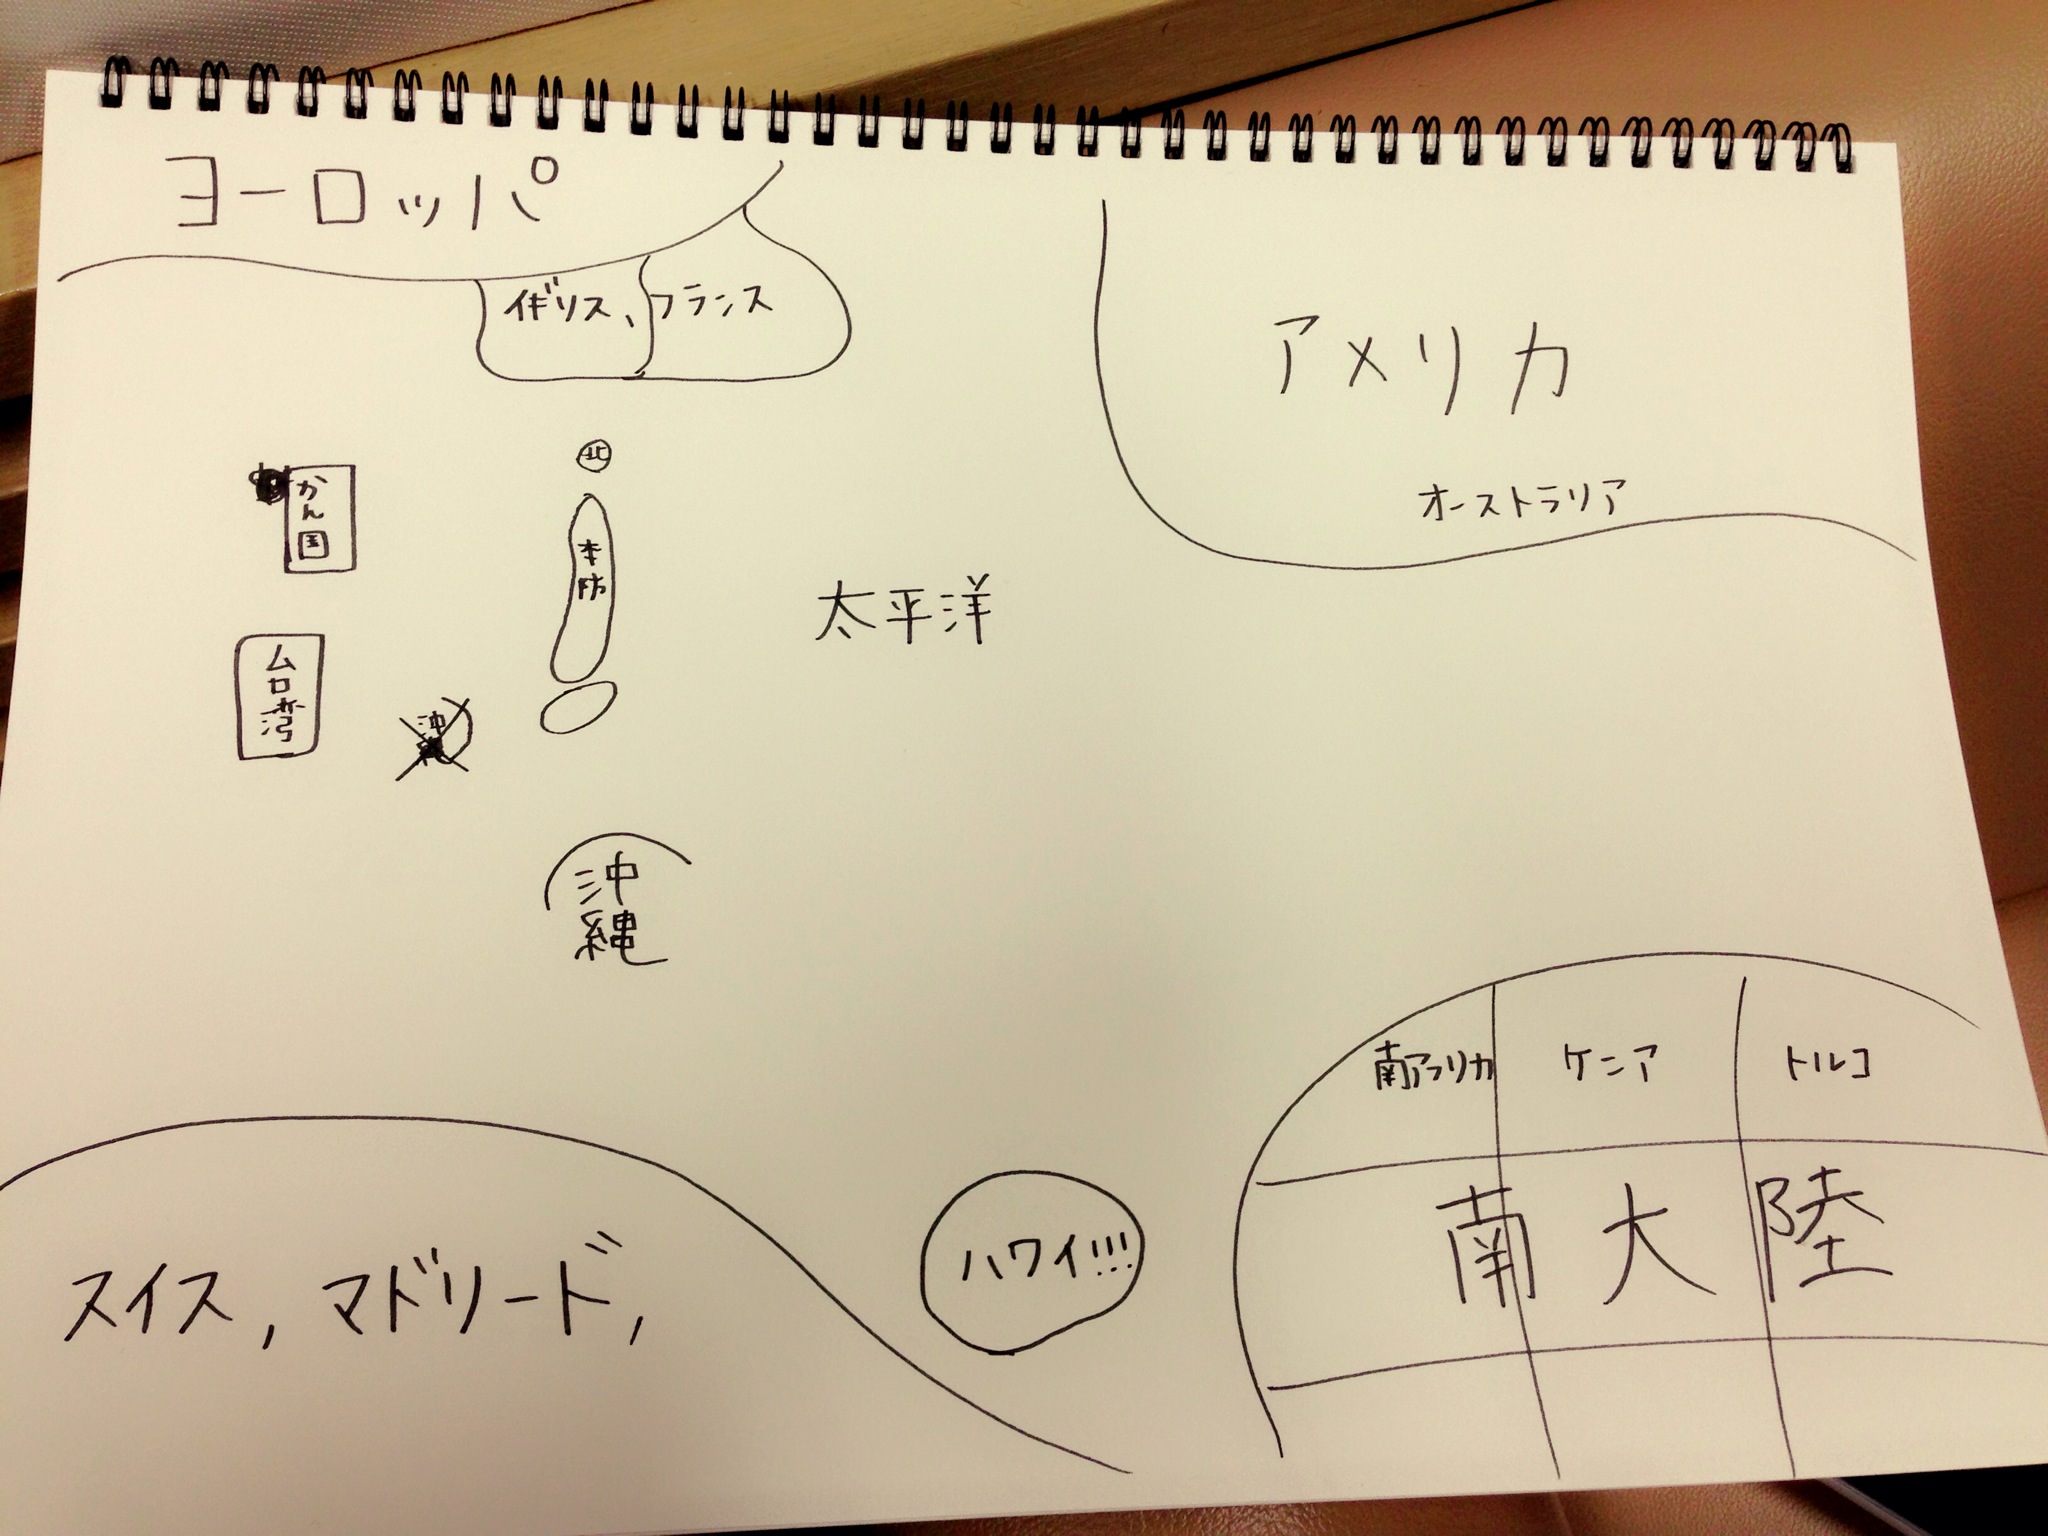 ヨーロッパ
イギリス、フランス
アメリカ
オーストラリア
北
かん国
本防
太平洋
ム口湾
沖
沖縄
南アフリカ
ケニア
トルコ
南大陸
スイス, マドリード,
ハワイ!!!